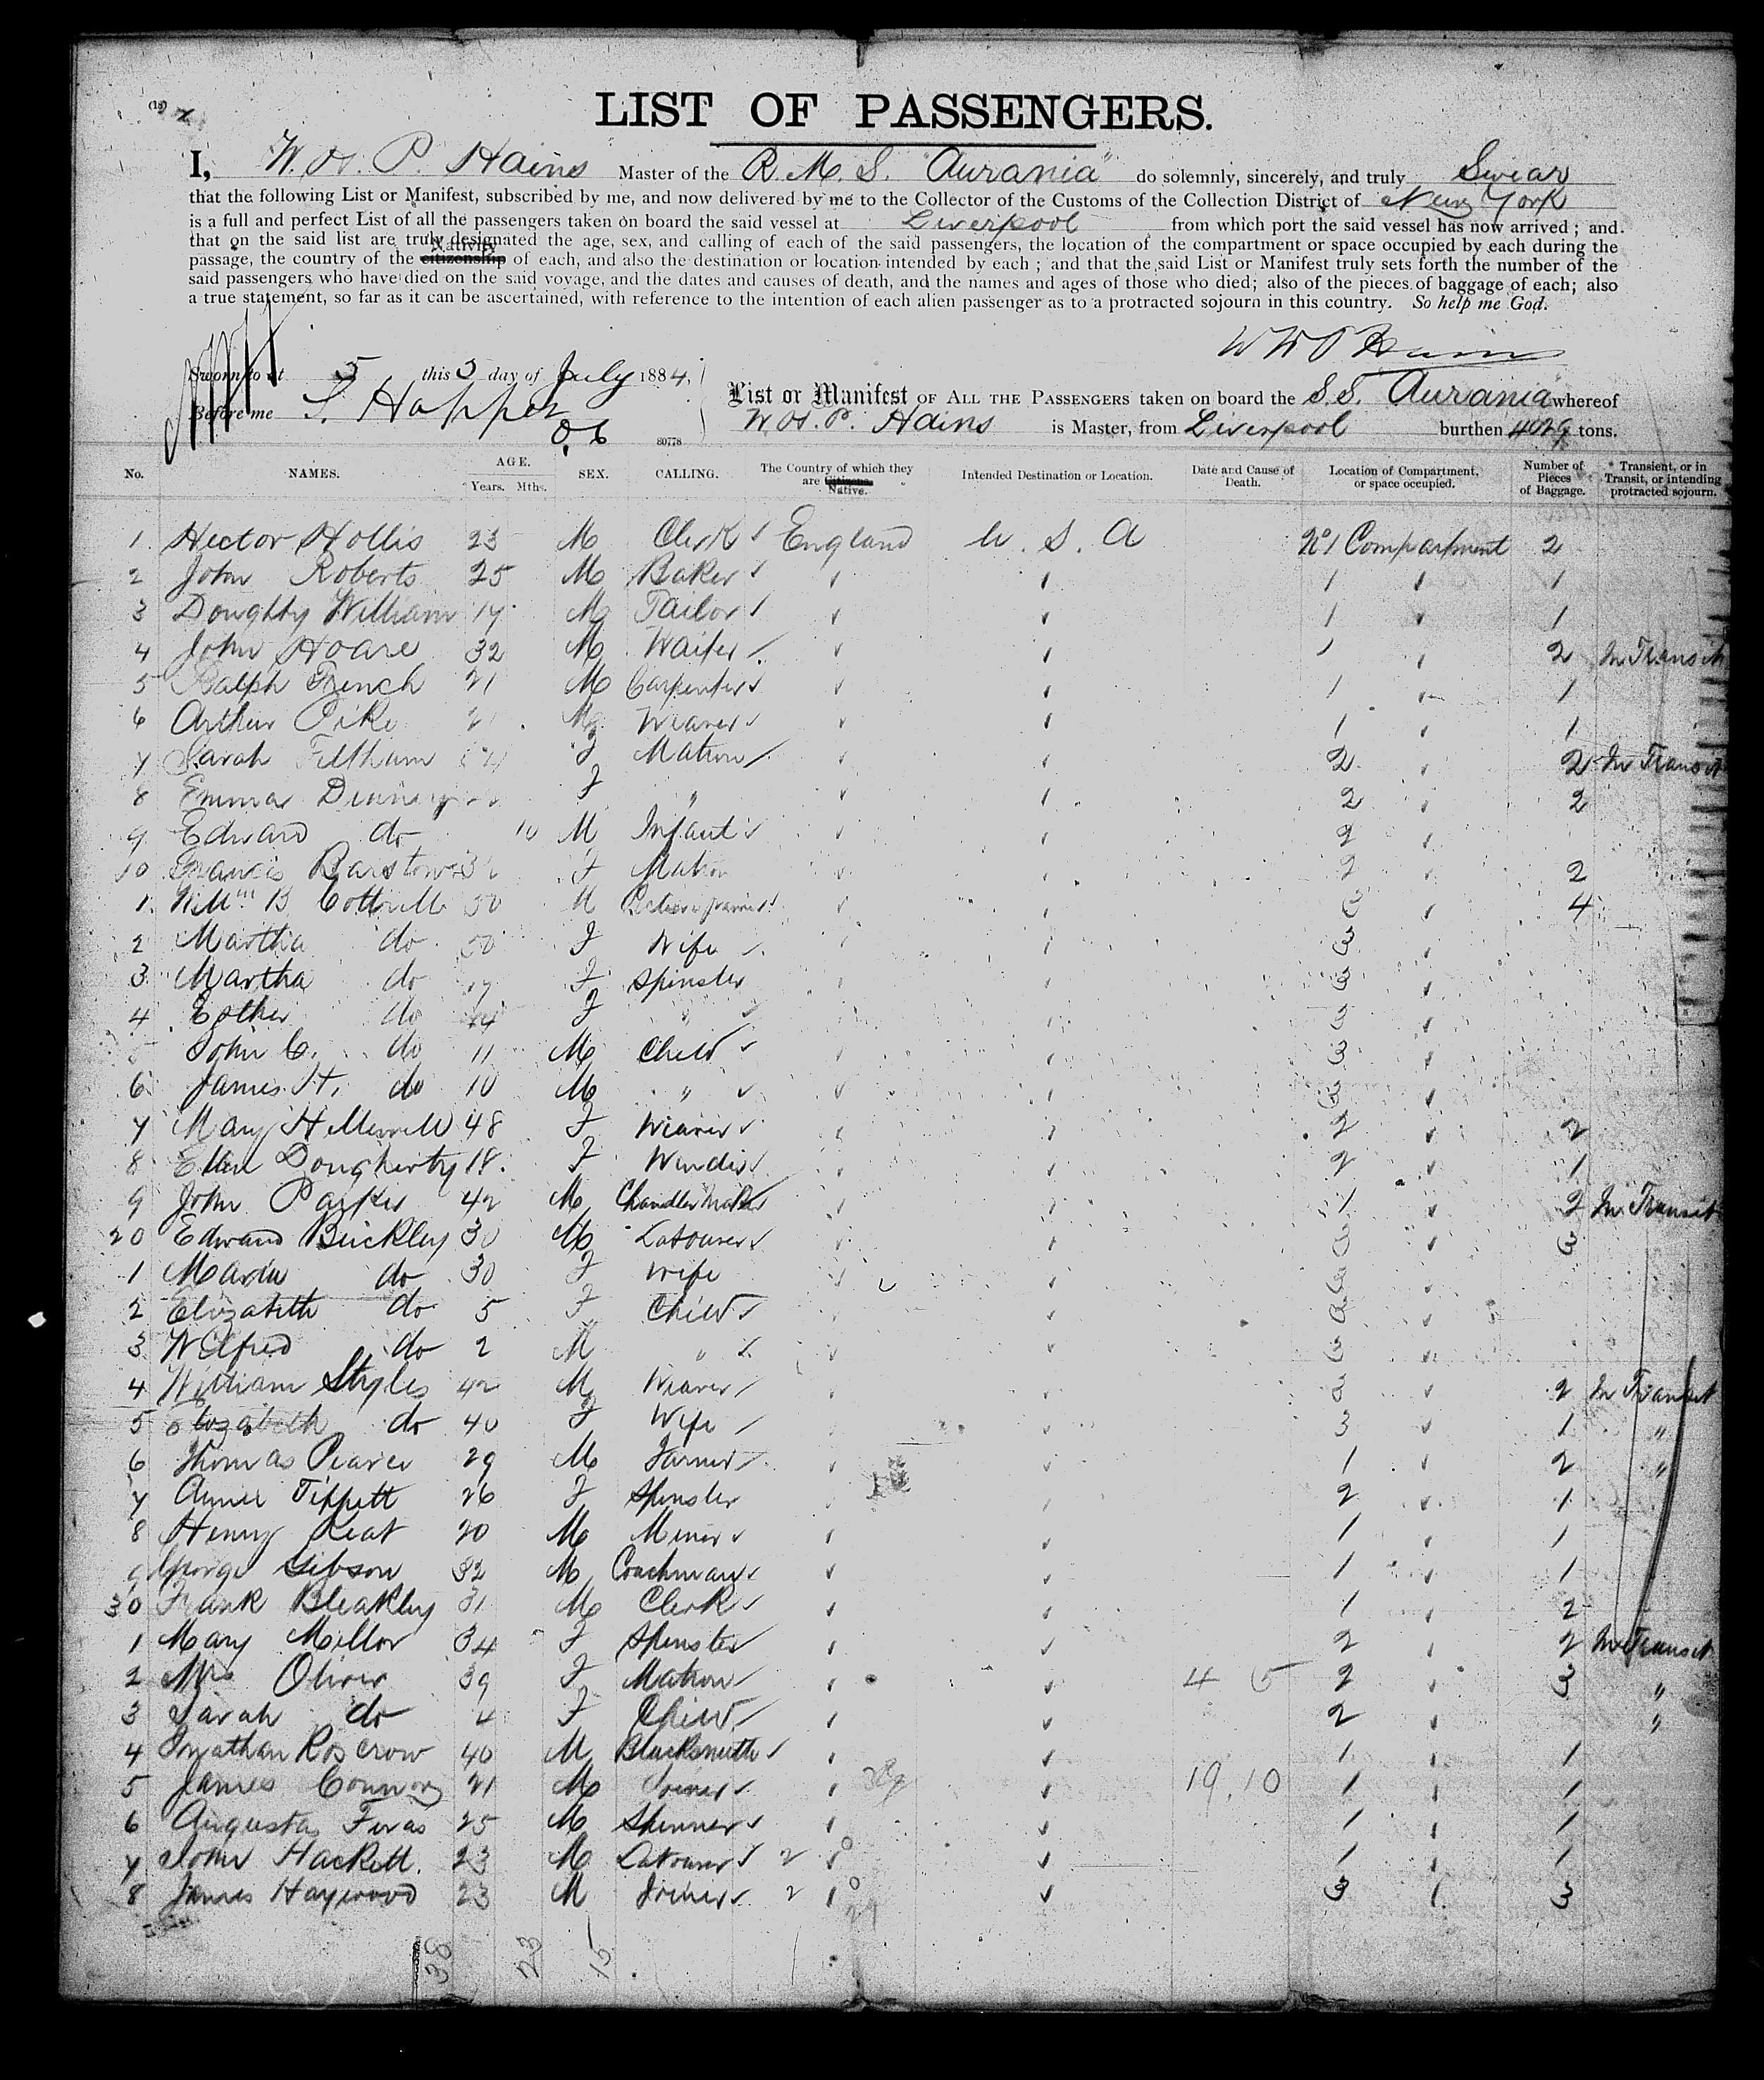 LIST OF PASSENGERS.
I, W. H. P. Hains Master of the R. M. S. "Aurania" do solemnly, sincerely, and truly Swear
that the following List or Manifest, subscribed by me, and now delivered by me to the Collector of the Customs of the Collection District of New York
is a full and perfect List of all the passengers taken on board the said vessel at Liverpool from which port the said vessel has now arrived ; and
that on the said list are truly designated the age, sex, and calling of each of the said passengers, the location of the compartment or space occupied by each during the
Nativity
passage, the country of the citizenship of each, and also the destination or location intended by each ; and that the said List or Manifest truly sets forth the number of the
said passengers who have died on the said voyage, and the dates and causes of death, and the names and ages of those who died; also of the pieces of baggage of each; also
a true statement, so far as it can be ascertained, with reference to the intention of each alien passenger as to a protracted sojourn in this country. So help me God.
W H P Hains
Sworn to at 5 this 5 day of July 1884,
Before me
80778
List or Manifest OF ALL THE PASSENGERS taken on board the S.S. Aurania whereof
W. H. P. Hains is Master, from Liverpool burthen 4029 tons.
No. NAMES. AGE. Years. Mths. SEX. CALLING. The Country of which they are Citizens. Native. Intended Destination or Location. Date and Cause of Death. Location of Compartment, or space occupied. Number of Pieces of Baggage. * Transient, or in Transit, or intending protracted sojourn.
1. Hector Hollis 23 M Clerk England U. S. A No 1 Compartment 2
2 John Roberts 25 M Baker 1 1
3 Doughty William 17 M Tailor 1 1
4 John Hoare 32 M Waiter 1 2 In Transit
5 Ralph French 21 M Carpenter 1 1
6 Arthur Pike 21 M Weaver 1 1
7 Sarah Feltham F Matron 2 2 In Transit
8 Emma F " 2 2
9 Edward do 10 M Infant 2
10 Francis Barstow F Matron 2 2
1. Willm B Cottrell 50 M 3 4
2 Martha do 50 F Wife 3
3 Martha do 17 F Spinster 3
4 Esther do 14 F " 3
5 John C. do 11 M Child 3
6 James H. do 10 M " 3
7 Mary 48 F Weaver 2 2
8 Ellen Dougherty 18 F Winder 2 1
9 John Parker 42 M Chandler Maker 1 2 In Transit
20 Edward Buckley 30 M Labourer 3 3
1 do 30 F Wife 3
2 Elizabeth do 5 F Child 3
3 Wilfred do 2 M " 3
4 William Styles 42 M Weaver 3 2 In Transit
5 Elizabeth do 40 F Wife 3 1 "
6 Thomas Pearce 29 M Farmer 1 2 "
7 Annie Tippett 26 F Spinster 2 1
8 Henry 20 M Miner 1 1
9 George Gibson 32 M Coachman 1 1
30 Frank Bleakley 31 M Clerk 1 2
1 Mary Mellor 34 F Spinster 2 2 In Transit
2 Mrs Oliver 39 F Matron 4 5 2 3 "
3 Sarah do 4 F Child 2 "
4 Jonathan Roscrow 40 M Blacksmith 1 1
5 James Connory 21 M Joiner 19.10 1 1
6 Augustas 25 M Spinner 1 1
7 John Hackett. 23 M Labourer 2 1 1
8 James Haywood 23 M Joiner 2 3 3
38 23 15